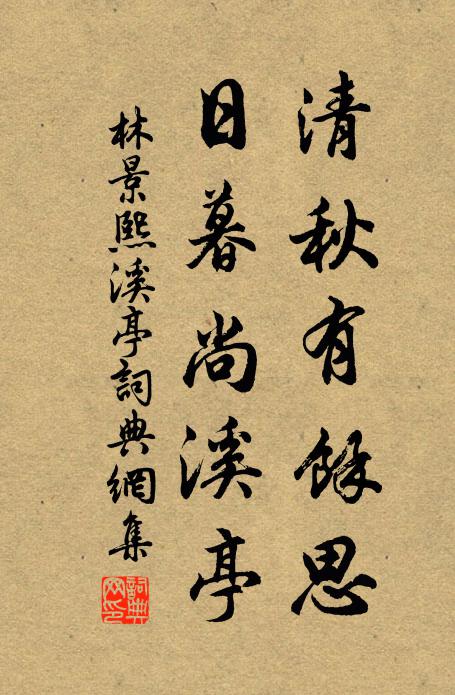 清秋有餘思
日暮尚溪亭
林景熙溪亭詞典網集
詞典網印